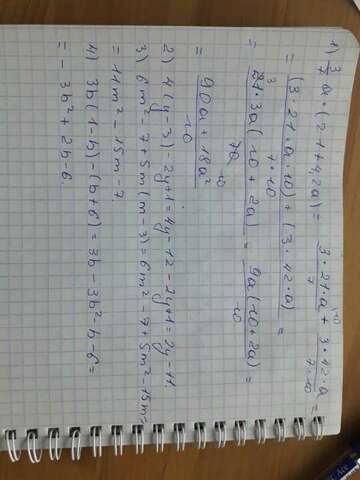 1) 3/7 a · (21 + 4,2a) = 3·21·a/7 + 3·42·a/7·10 =
= (3·21·a·10) + (3·42·a)/7·10 =
= 21·3a(10 + 2a)/70 = 9a(10+2a)/10 =
= 90a + 18a²/10
2) 4(y-3) - 2y+1 = 4y-12-2y+1 = 2y-11.
3) 6m²-7+5m(m-3) = 6m²-7+5m²-15m=
= 11m²-15m-7
4) 3b(1-b)-(b+6) = 3b-3b²-b-6 =
= -3b²+2b-6.